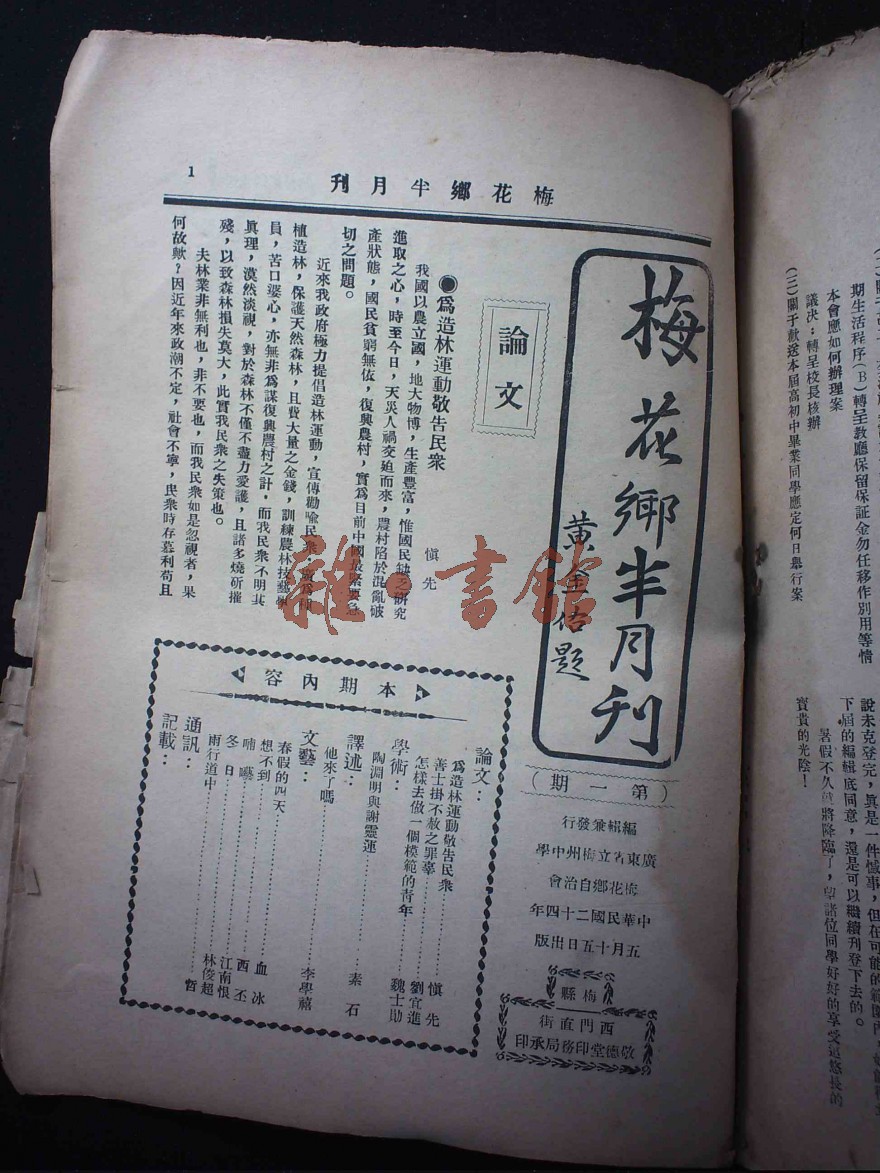 1
梅花鄉半月刊
梅花鄉半月刊
黃金佑題
(第一期)
編輯兼發行
廣東省立梅州中學
梅花鄉自治會
中華民國二十四年
五月十五日出版
梅縣
西門直街
敬德堂印務局承印
論文
●爲造林運動敬告民衆
愼先
我國以農立國,地大物博,生產豐富,惟國民缺乏研究
進取之心,時至今日,天災人禍交迫而來,農村陷於混亂破
產狀態,國民貧窮無依,復興農村,實爲目前中國最緊要急
切之問題。
近來我政府極力提倡造林運動,宣傳勸喩民衆,
植造林,保護天然森林,且費大量之金錢,訓練農林技藝
員,苦口婆心,亦無非爲謀復興農村之計,而我民衆不明其
眞理,漠然淡視,對於森林不僅不盡力愛護,且諸多燒斫摧
殘,以致森林損失莫大,此實我民衆之失策也。
夫林業非無利也,非不要也,而我民衆如是忽視者,果
何故歟?因近年來政潮不定,社會不寧,民衆時存慕利苟且
本期內容
論文:
爲造林運動敬告民衆………愼先
善士掛不赦之罪辜………劉宜進
怎樣去做一個模範的青年………魏士勛
學術:
陶淵明與謝靈運………素石
譯述:
他來了嗎………李學禧
文藝:
春假的四天………血冰
想不到………西丕
喃囈………江南恨
冬日………林俊超
雨行道中………哲
通訊:
記載:
雜·書館
期生活程序(B)轉呈教廳保留保証金勿任移作別用等情
本會應如何辦理案
議决:轉呈校長核辦
(三)關于歡送本屆高初中畢業同學應定何日舉行案
說未克登完,眞是一件憾事,但在可能的範圍內,
下屆的編輯底同意,還是可以繼續刊登下去的。
暑假不久就將降臨了,望諸位同學好好的享受這悠長的
寶貴的光陰!